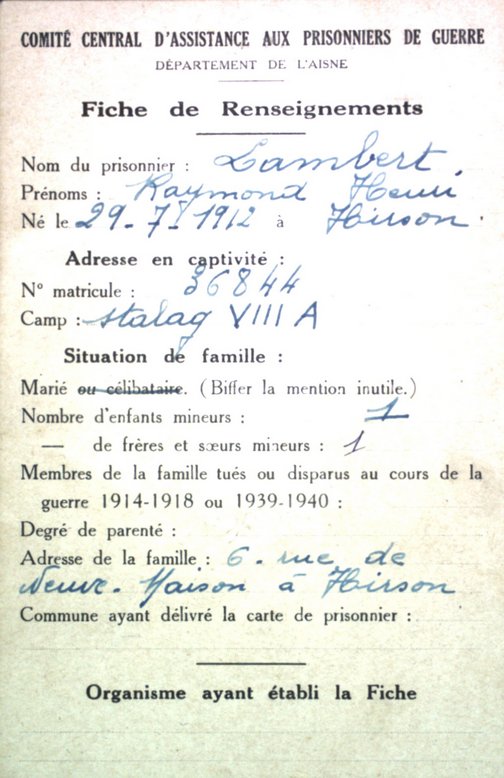 COMITÉ CENTRAL D'ASSISTANCE AUX PRISONNIERS DE GUERRE
DÉPARTEMENT DE L'AISNE
Fiche de Renseignements
Nom du prisonnier : Lambert.
Prénoms : Raymond Henri
Né le 29-7-1912 à Hirson.
Adresse en captivité :
N° matricule : 36844
Camp : stalag VIII A
Situation de famille :
Marié ou célibataire. (Biffer la mention inutile.)
Nombre d'enfants mineurs : 1
— de frères et sœurs mineurs : 1
Membres de la famille tués ou disparus au cours de la
guerre 1914-1918 ou 1939-1940 :
Degré de parenté :
Adresse de la famille : 6. rue de
Neuve-Maison à Hirson
Commune ayant délivré la carte de prisonnier :
Organisme ayant établi la Fiche